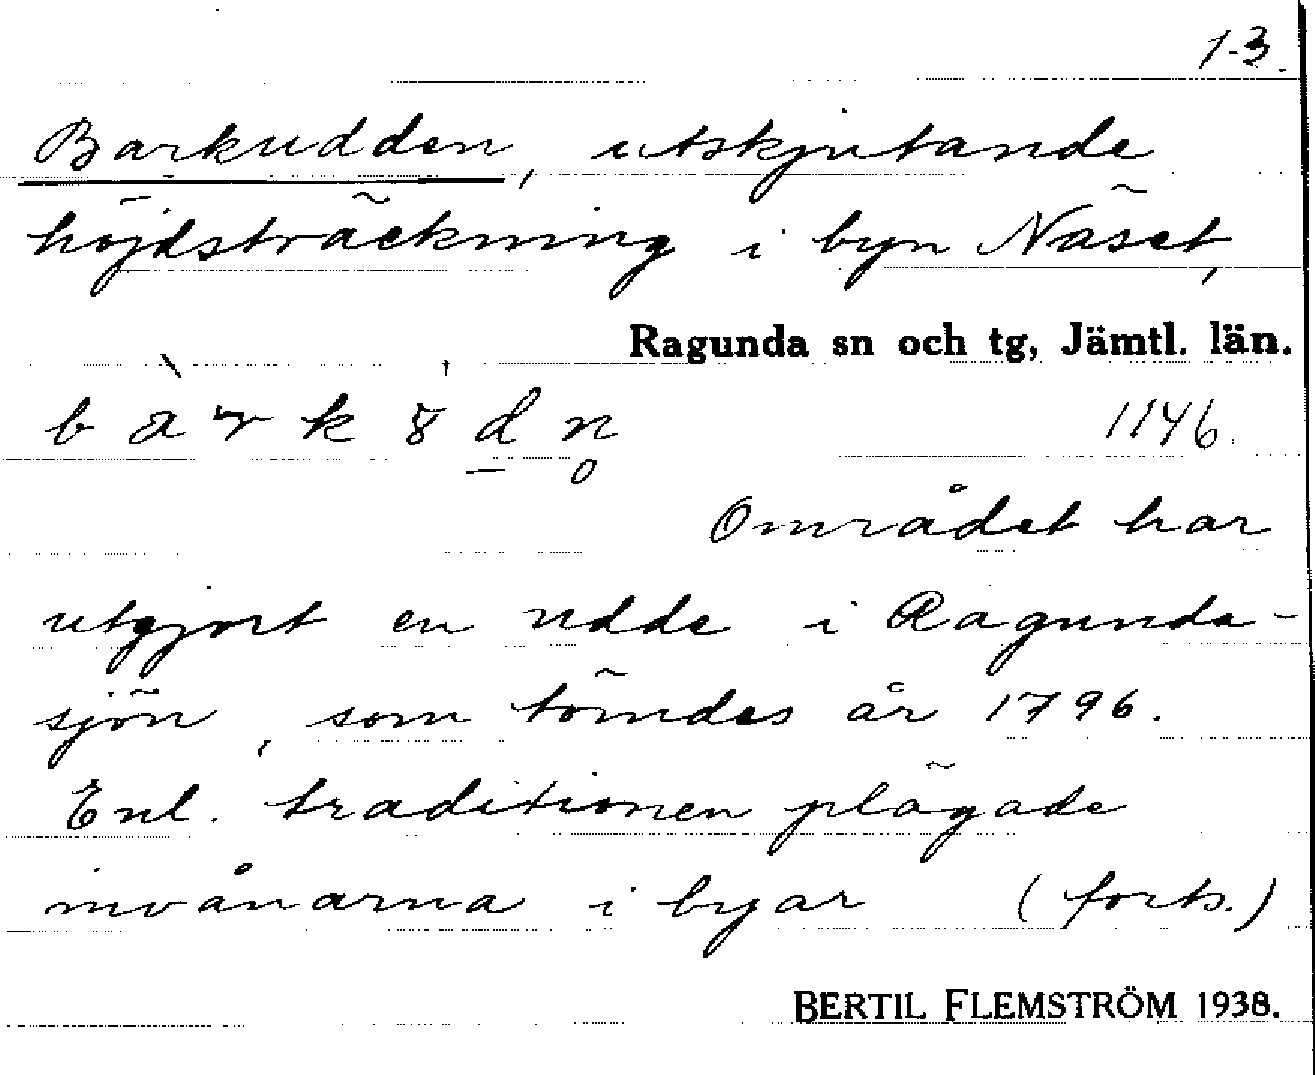 1-3.
Barkudden, utskjutande
höjdsträckning i byn Näset,
Ragunda sn och tg, Jämtl. län.
1146.
Området har
utgjort en udde i Ragunda-
sjön, som tömdes år 1796.
Enl. traditionen plägade
invånarna i byar (forts.)
BERTIL FLEMSTRÖM 1938.